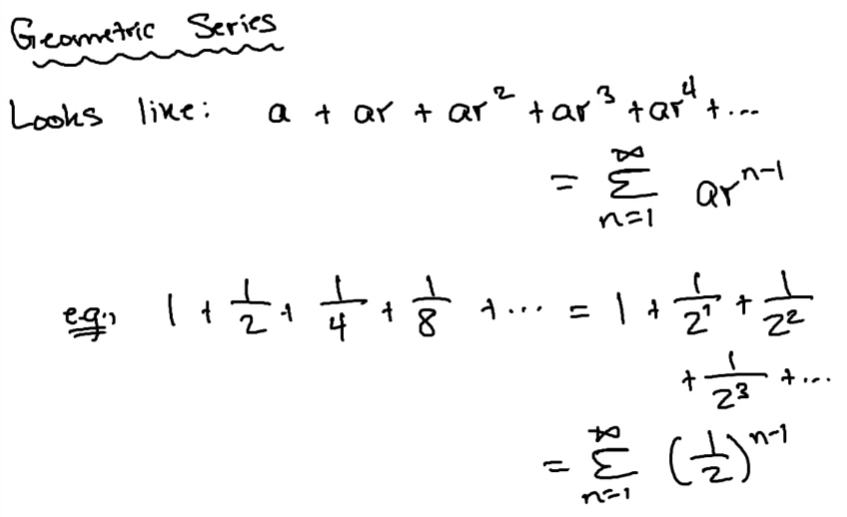 Geometric Series
Looks like: a + ar + ar² + ar³ + ar⁴ + ...
= ∑_{n=1}^{∞} ar^{n-1}
e.g., 1 + 1/2 + 1/4 + 1/8 + ... = 1 + 1/2¹ + 1/2²
+ 1/2³ + ...
= ∑_{n=1}^{∞} (1/2)^{n-1}